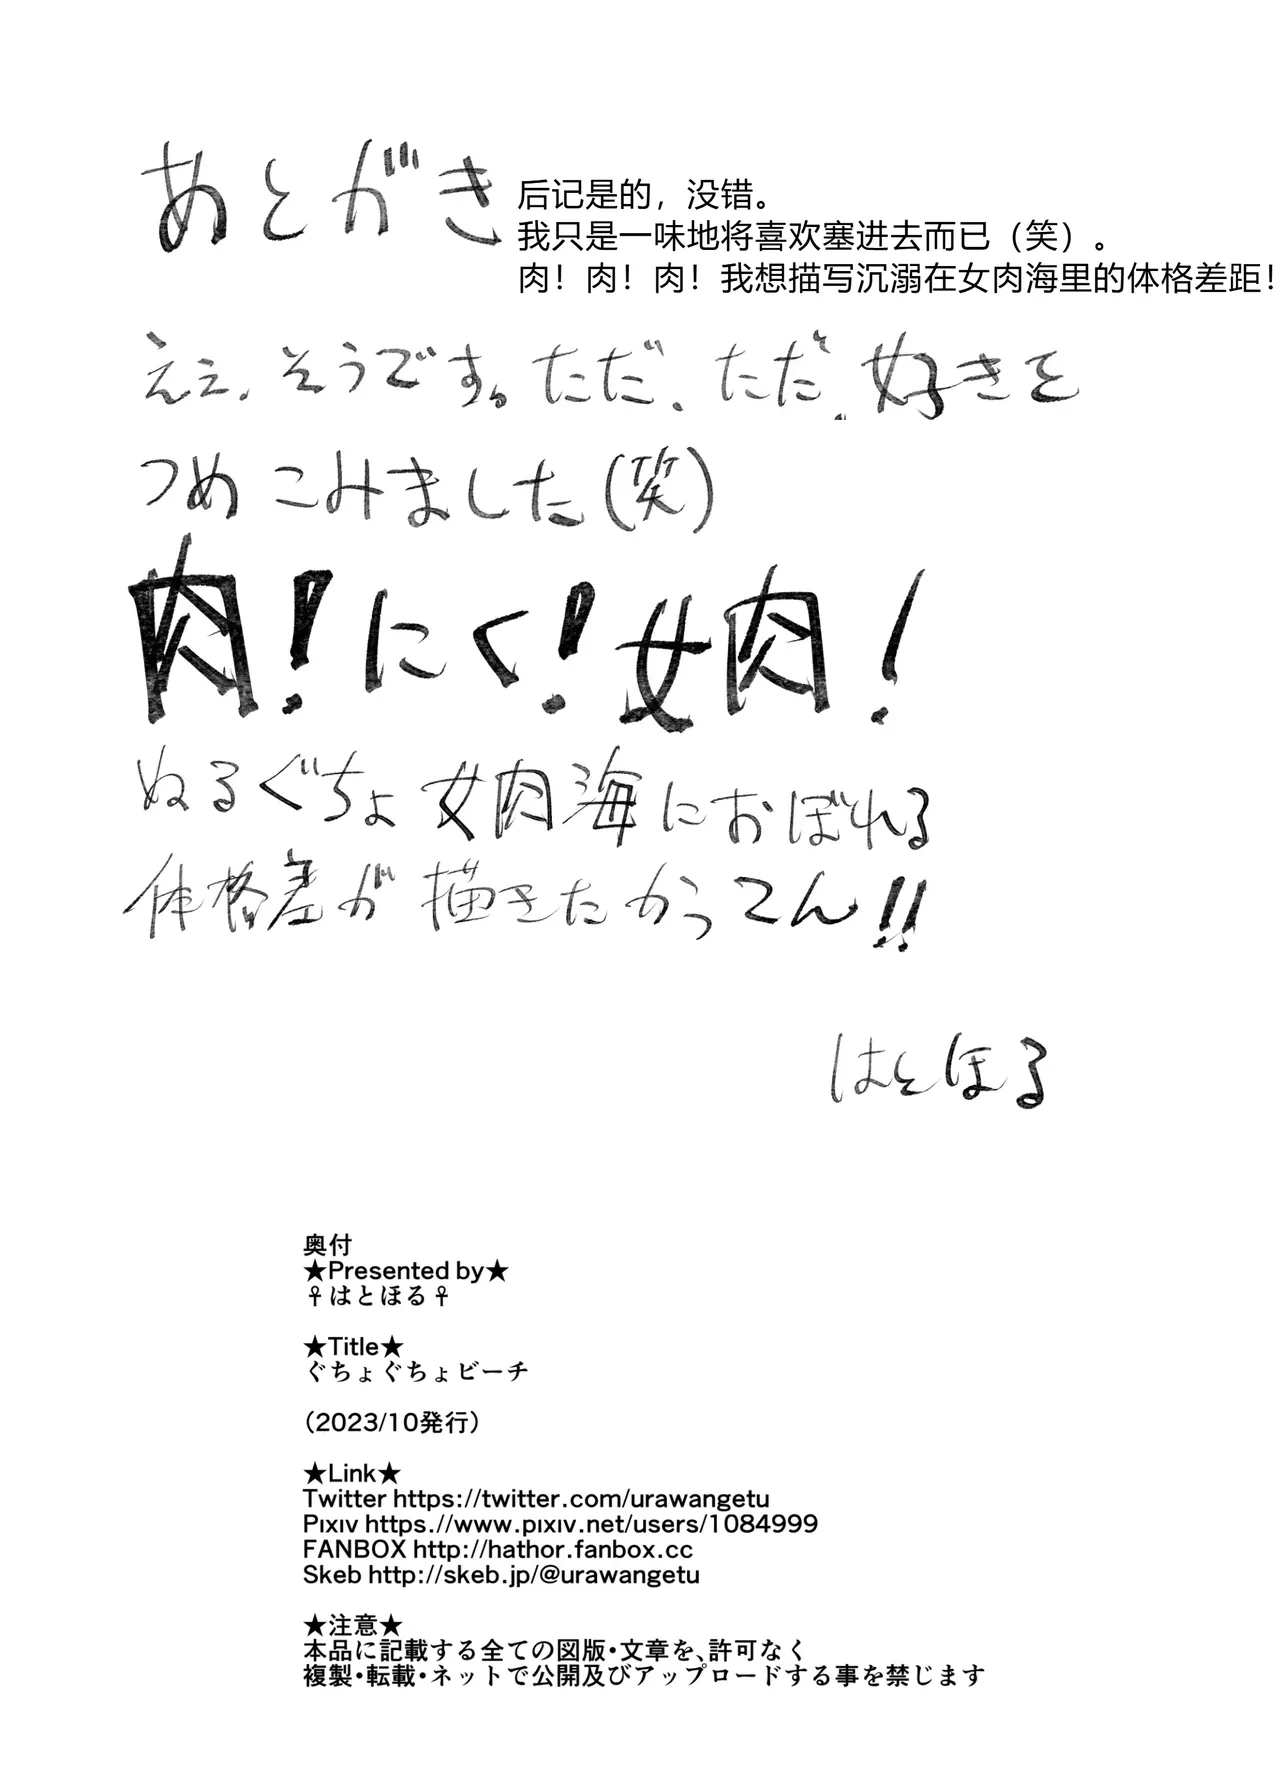 あとがき
后记是的，没错。
我只是一味地将喜欢塞进去而已（笑）。
肉！肉！肉！我想描写沉溺在女肉海里的体格差距！
ええ、そうです。ただ、ただ、好きを
つめこみました(笑)
肉！にく！女肉！
ぬるぐちょ女肉海におぼれる
体格差が描きたかってん!!
はとほる
奥付
★Presented by★
♀はとほる♀
★Title★
ぐちょぐちょビーチ
（2023/10発行）
★Link★
Twitter https://twitter.com/urawangetu
Pixiv https://www.pixiv.net/users/1084999
FANBOX http://hathor.fanbox.cc
Skeb http://skeb.jp/@urawangetu
★注意★
本品に記載する全ての図版・文章を、許可なく
複製・転載・ネットで公開及びアップロードする事を禁じます